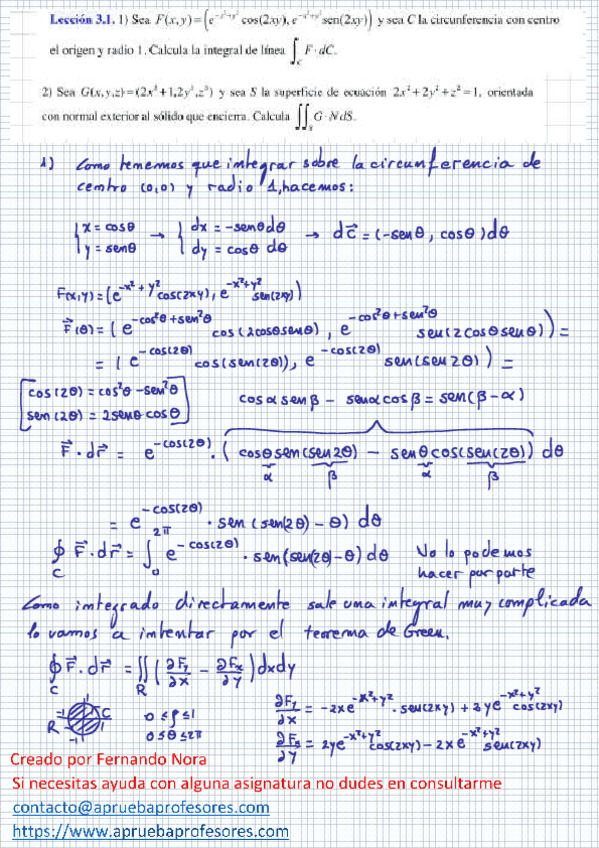 Lección 3.1. 1) Sea F(x,y)=(e^{-x²+y²} cos(2xy), e^{-x²+y²} sen(2xy)) y sea C la circunferencia con centro
el origen y radio 1. Calcula la integral de línea ∫_C F·dC.
2) Sea G(x,y,z)=(2x³+1,2y³,z³) y sea S la superficie de ecuación 2x²+2y²+z²=1, orientada
con normal exterior al sólido que encierra. Calcula ∬_S G·NdS.
1) Como tenemos que integrar sobre la circunferencia de
centro (0,0) y radio 1, hacemos:
{x = cosθ → {dx = -senθdθ → dc⃗ = (-senθ, cosθ)dθ
y = senθ dy = cosθ dθ
F(x,y) = (e^{-x²+y²} cos(2xy), e^{-x²+y²} sen(2xy))
F⃗(θ) = (e^{-cos²θ+sen²θ} cos(2cosθsenθ), e^{-cos²θ+sen²θ} sen(2cosθsenθ)) =
= (e^{-cos(2θ)} cos(sen(2θ)), e^{-cos(2θ)} sen(sen2θ)) =
[cos(2θ) = cos²θ - sen²θ
sen(2θ) = 2senθcosθ]
cosα senβ - senα cosβ = sen(β-α)
F⃗·dr⃗ = e^{-cos(2θ)}·(cosθ sen(sen2θ) - senθ cos(sen(2θ))) dθ
α β α β
= e^{-cos(2θ)}·sen(sen(2θ) - θ) dθ
∮_C F⃗·dr⃗ = ∫_0^{2π} e^{-cos(2θ)}·sen(sen(2θ)-θ) dθ No lo podemos
hacer por parte
Como integrado directamente sale una integral muy complicada
lo vamos a intentar por el teorema de Green.
∮_C F⃗·dr⃗ = ∬_R (∂F_y/∂x - ∂F_x/∂y) dxdy
-1 1 C 1 R -1
0 ≤ ρ ≤ 1
0 ≤ θ ≤ 2π
∂F_y/∂x = -2xe^{-x²+y²}·sen(2xy) + 2ye^{-x²+y²} cos(2xy)
∂F_x/∂y = 2ye^{-x²+y²} cos(2xy) - 2xe^{-x²+y²} sen(2xy)
Creado por Fernando Nora
Si necesitas ayuda con alguna asignatura no dudes en consultarme
contacto@apruebaprofesores.com
https://www.apruebaprofesores.com